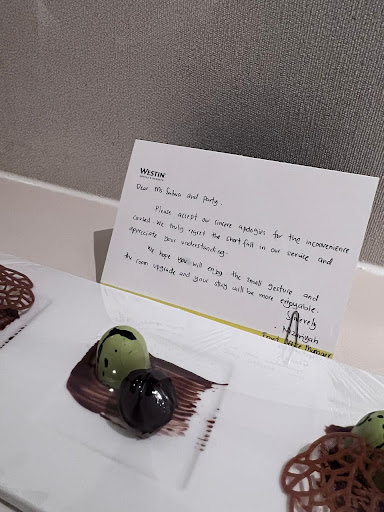 WESTIN
Dear Ms Salwa and party,
Please accept our sincere apologies for the inconvenience
caused. We truly regret the short fall in our service and
appreciate your understanding.
We hope you will enjoy the small gesture and
the room upgrade and your stay will be more enjoyable.
Sincerely
Manager